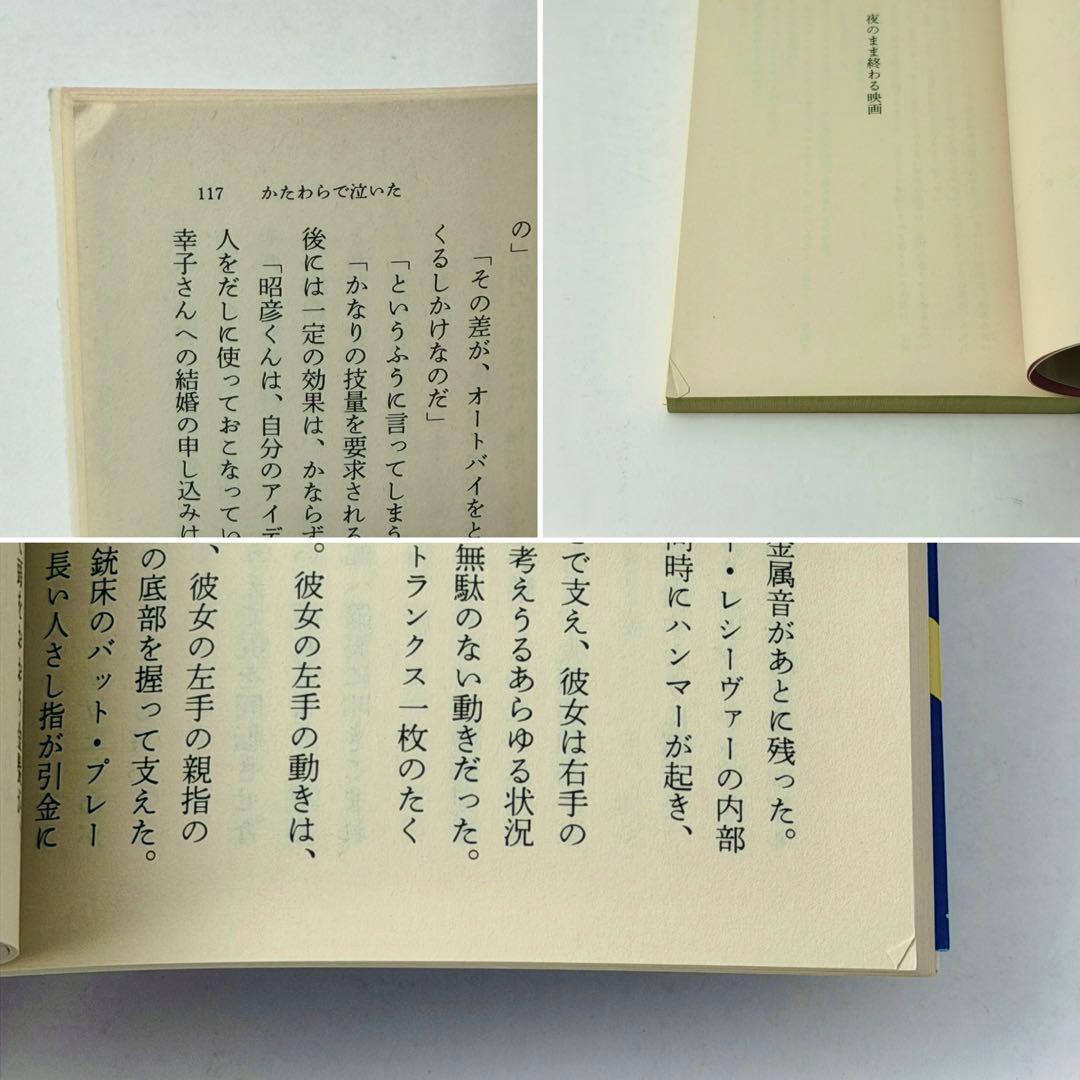 117 かたわらで泣いた
の」
「その差が、オートバイをと
くるしかけなのだ」
「というふうに言ってしまう
「かなりの技量を要求される
後には一定の効果は、かならず
「昭彦くんは、自分のアイデ
人をだしに使っておこなってい
幸子さんへの結婚の申し込みは
夜のまま終わる映画
金属音があとに残った。
ー・レシーヴァーの内部
同時にハンマーが起き、
で支え、彼女は右手の
考えうるあらゆる状況
無駄のない動きだった。
トランクス一枚のたく
。彼女の左手の動きは、
、彼女の左手の親指の
の底部を握って支えた。
銃床のバット・プレー
長い人さし指が引金に